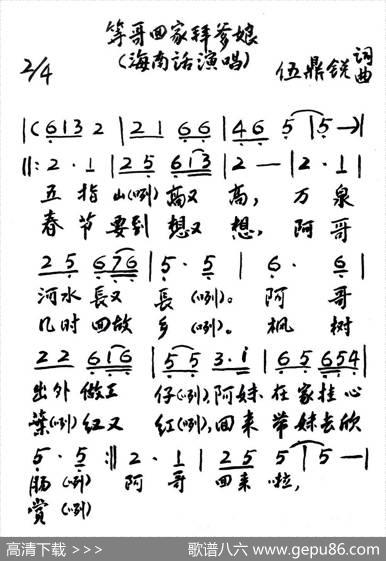 等哥回家拜爹娘
(海南話演唱)
2/4
伍鼎锐 词曲
|(6132 2|21 66|46 5|5—)|
||:2·1|25 613|2—|2·1|
五指山(咧)高又高,万泉
春节要到想又想,阿哥
25 676|5·5|6·6|
河水長又長(咧)。阿哥
几时回故乡(咧)。枫树
22 616|55 3·1|65 654|
出外做工仔(咧),阿妹在家挂心
葉(咧)红又红(咧),回来带妹去欣
5·5:||2·1|25 5|5—|
肠(咧)阿哥回来啦,
赏(咧)
高清下载 >>>
歌谱八六 www.gepu86.com